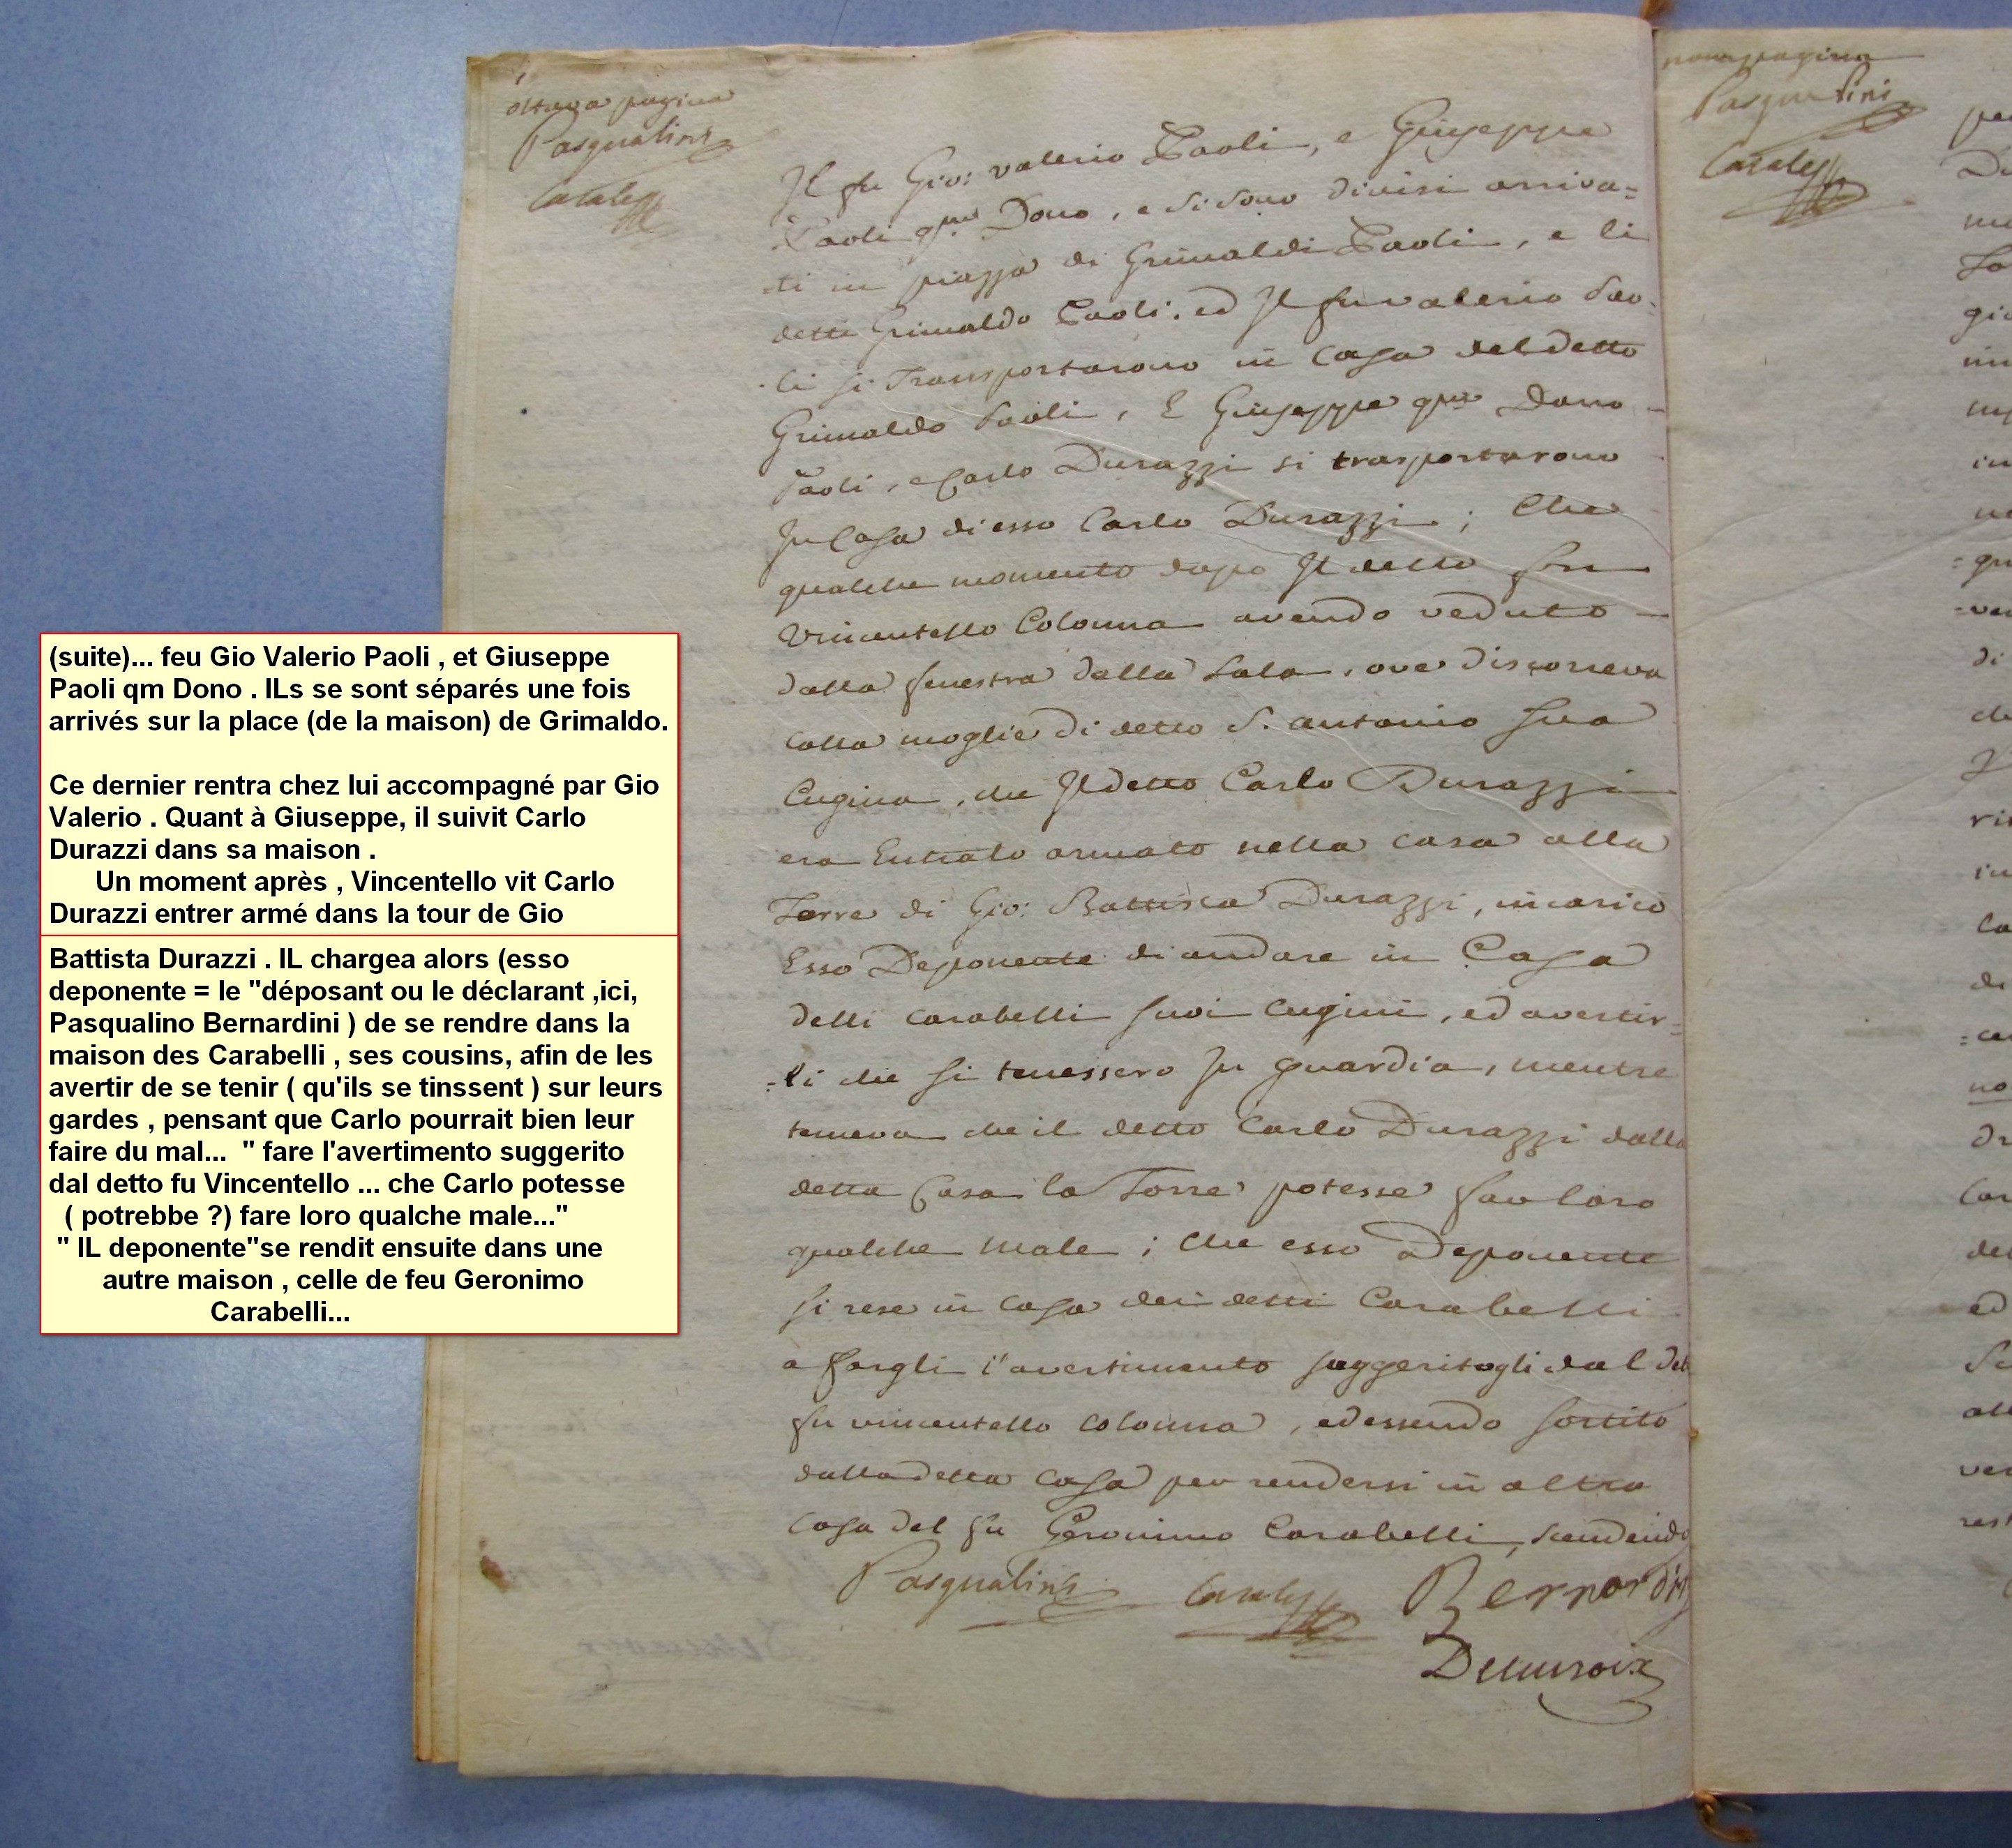 ottava pagina
Pasqualini
Casale
Il fu Gio: valerio Paoli, e Giuseppe
Paoli qm Dono, e si sono divisi arriva=
ti in piazza di Grimaldi Paoli, e li
detti Grimaldo Paoli, ed Il fu valerio Pao=
li si Transportarono in Casa del detto
Grimaldo Paoli, E Giuseppe qm Dono
Paoli, e Carlo Durazzi si trasportarono
In Casa di esso Carlo Durazzi; Che
qualche momento dopo Il detto fu
Vincentello Colonna avendo veduto
dalla fenestra della Sala, ove discorreva
colla moglie di detto S. antonio Sua
Cugina, che Il detto Carlo Durazzi
era Entrato armato nella casa alla
Torre di Gio: Battista Durazzi, incaricò
Esso Deponente di andare in Casa
delli Carabelli suoi cugini, ed avertir=
=li che si tenessero In guardia, mentre
temeva che il detto Carlo Durazzi dalla
detta Casa la Torre potesse far loro
qualche male; Che esso Deponente
si rese in Casa dei detti Carabelli
a fargli l'avertimento suggeritogli dal det
fu vincentello Colonna, ed essendo sortito
dalla detta Casa per rendersi in altra
Casa del fu Geronimo Carabelli, scendendo
Pasqualini Casale Bernardini
(suite)... feu Gio Valerio Paoli , et Giuseppe
Paoli qm Dono . ILs se sont séparés une fois
arrivés sur la place (de la maison) de Grimaldo.
Ce dernier rentra chez lui accompagné par Gio
Valerio . Quant à Giuseppe, il suivit Carlo
Durazzi dans sa maison .
Un moment après , Vincentello vit Carlo
Durazzi entrer armé dans la tour de Gio
Battista Durazzi . IL chargea alors (esso
deponente = le "déposant ou le déclarant ,ici,
Pasqualino Bernardini ) de se rendre dans la
maison des Carabelli , ses cousins, afin de les
avertir de se tenir ( qu'ils se tinssent ) sur leurs
gardes , pensant que Carlo pourrait bien leur
faire du mal... " fare l'avertimento suggerito
dal detto fu Vincentello ... che Carlo potesse
( potrebbe ?) fare loro qualche male..."
" IL deponente"se rendit ensuite dans une
autre maison , celle de feu Geronimo
Carabelli...
nona pagina
Pasqualini
Casale